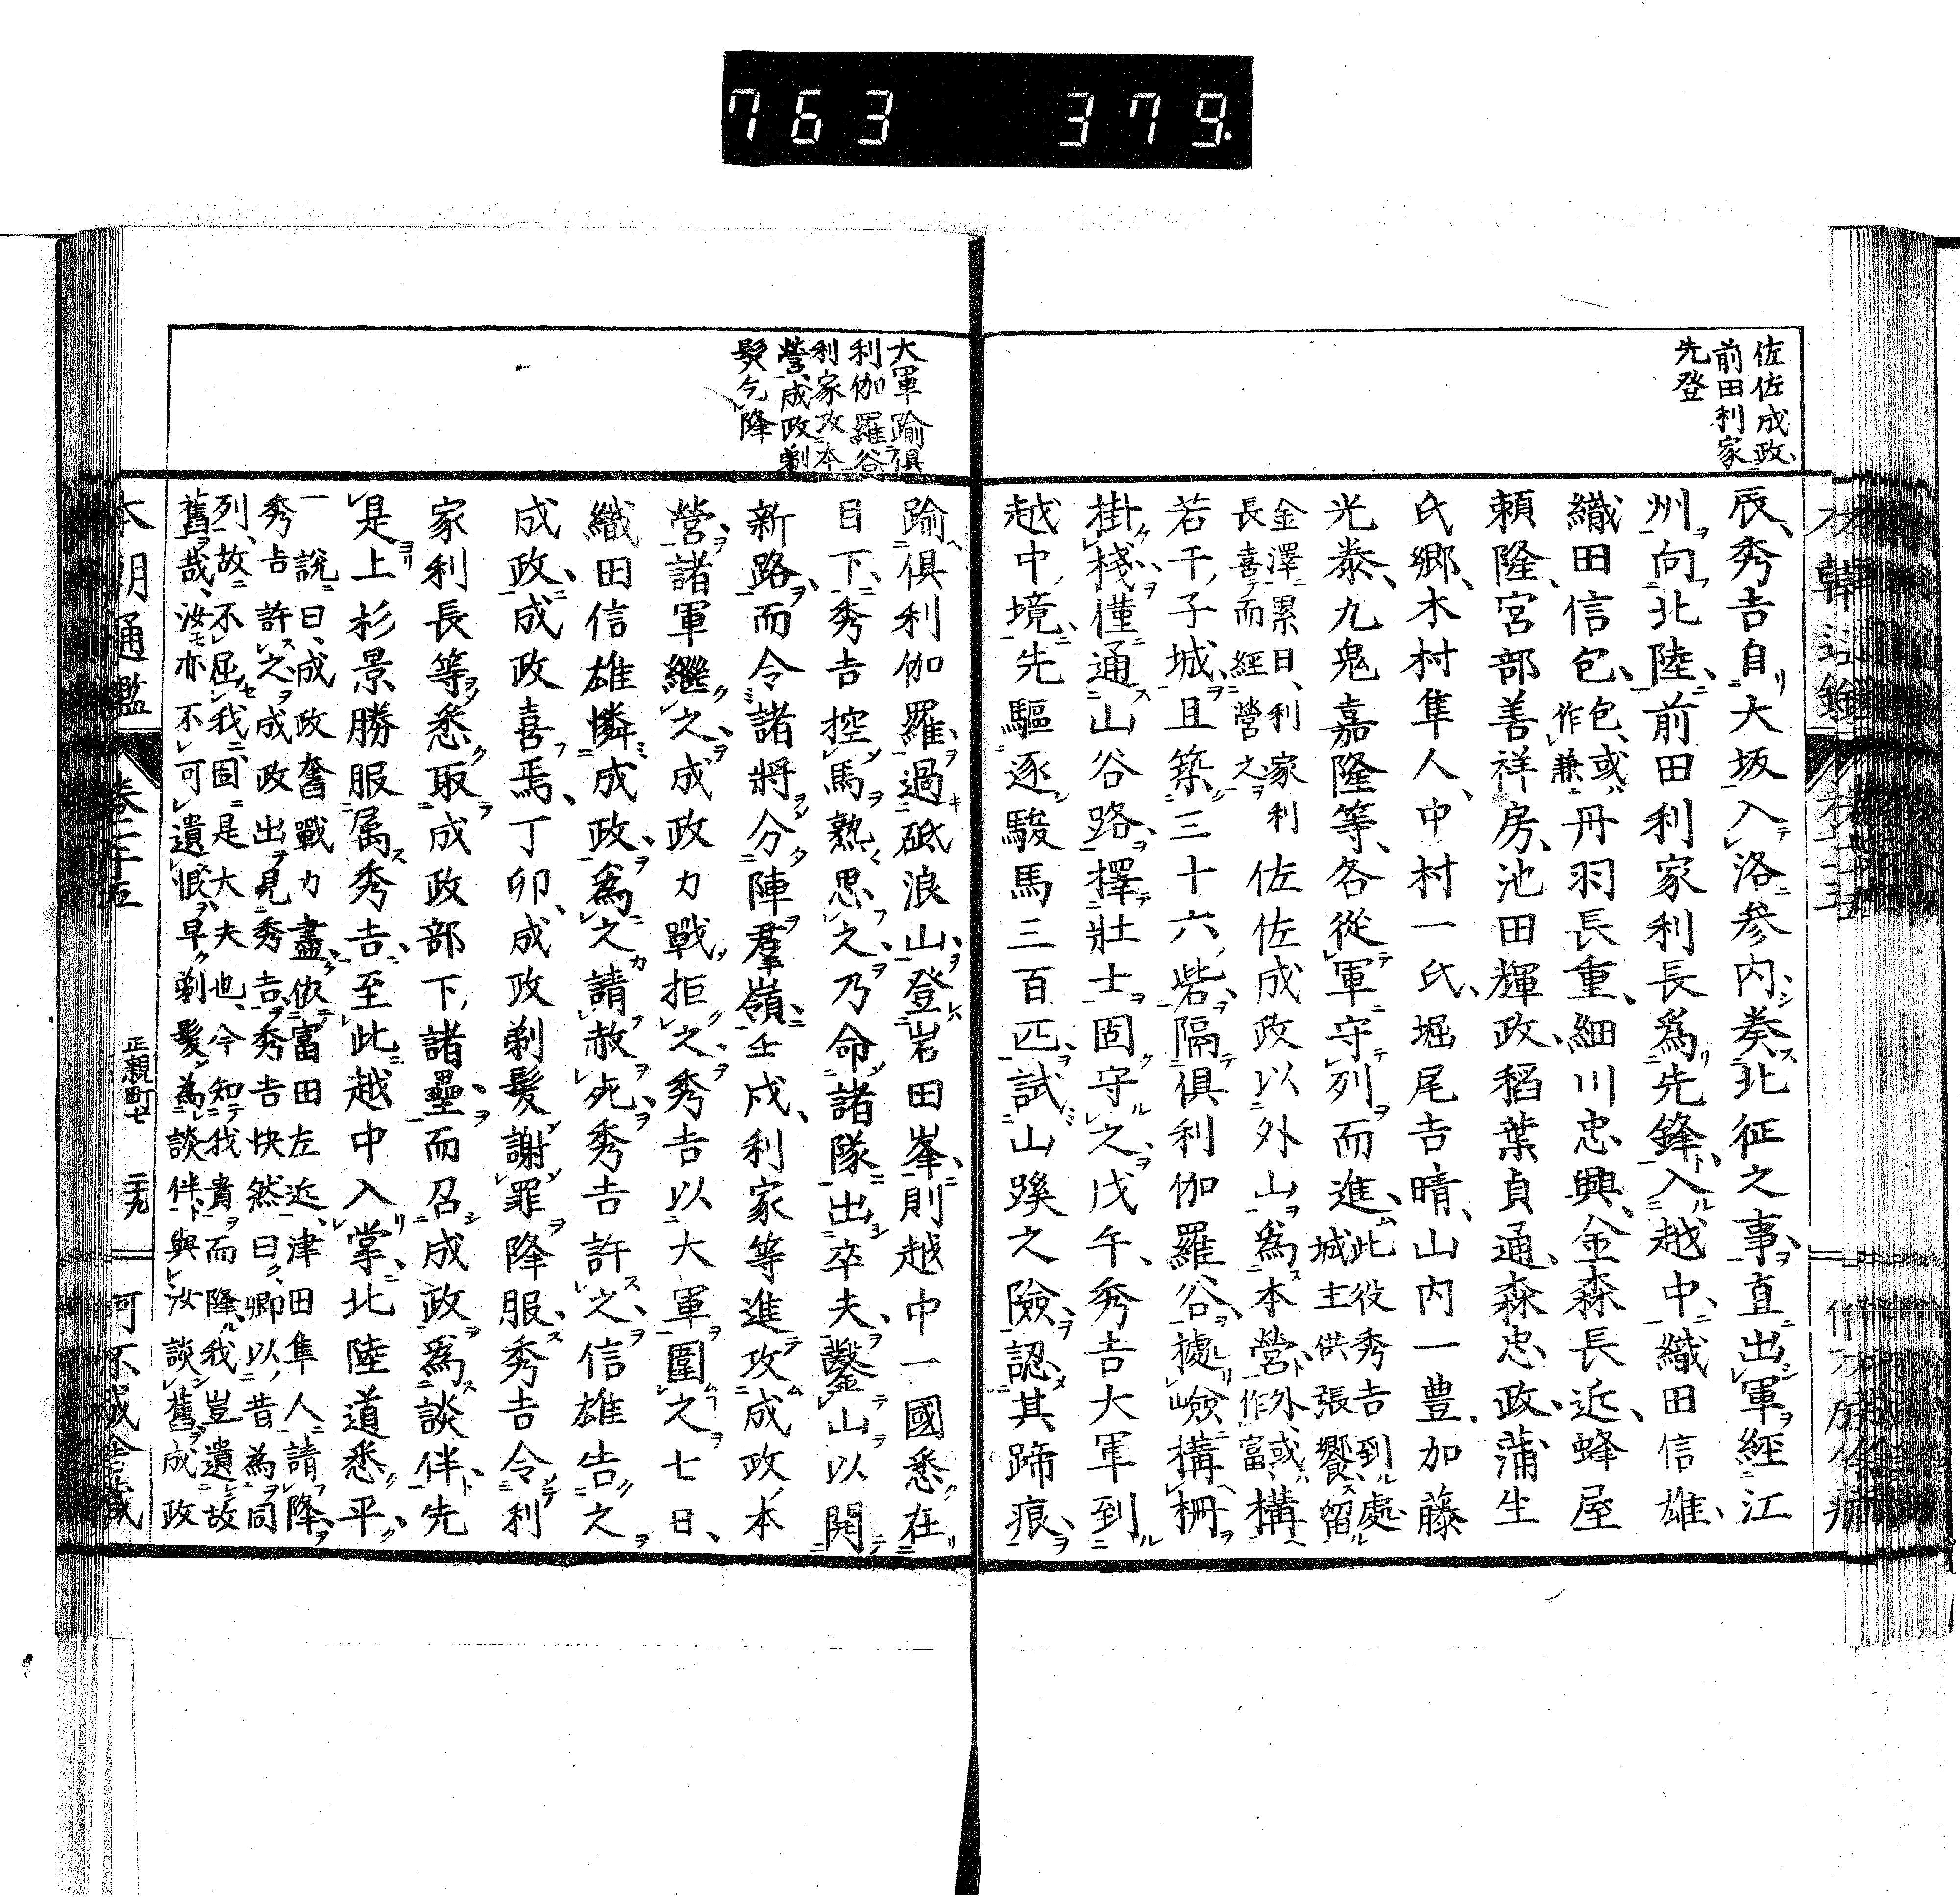 763 379.
佐佐成政
前田利家
先登
辰、秀吉自大坂入洛參内、奏北征之事、直出軍經江
州向北陸、前田利家利長爲先鋒、入越中、織田信雄、
織田信包、包、或作兼 丹羽長重、細川忠興、金森長近、蜂屋
賴隆、宮部善祥房、池田輝政、稻葉貞通、森忠政、蒲生
氏鄉、木村隼人、中村一氏、堀尾吉晴、山内一豊、加藤
光泰、九鬼嘉隆等、各從軍守列而進、此役秀吉到處城主供張饗留
金澤累日、利家利長喜而經營之 佐佐成政以外山爲本營、外、或作富 構
若干子城、且築三十六砦、隔俱利伽羅谷、據嶮構柵
掛棧、僅通山谷路、擇壯士固守之、戊午、秀吉大軍到
越中境、先驅逐駿馬三百匹、試山蹊之險、認其蹄痕、
大軍踰俱
利伽羅谷
利家攻本
營、成政剃
髮乞降
踰俱利伽羅、過砥浪山、登岩田峯、則越中一國悉在
目下、秀吉控馬熟思之、乃命諸隊出卒夫、鑿山以開
新路、而令諸將分陣羣嶺、壬戌、利家等進攻成政本
營、諸軍繼之、成政力戰拒之、秀吉以大軍圍之七日、
織田信雄憐成政、爲之請赦死、秀吉許之、信雄告之
成政、成政喜焉、丁卯、成政剃髮謝罪降服、秀吉令利
家利長等悉取成政部下諸壘、而召成政爲談伴、先
是上杉景勝服屬秀吉、至此越中入掌、北陸道悉平、
一說曰、成政奮戰力盡、依富田左近、津田隼人請降、
秀吉許之、成政出見秀吉、秀吉快然曰、卿以昔爲同
列、故不屈我、固是大夫也、今知我貴而降、我豈遺故
舊哉、汝亦不可遺恨、早剃髮爲談伴、與汝談舊、成政
本朝通鑑 卷二十五 正親町七 三十九